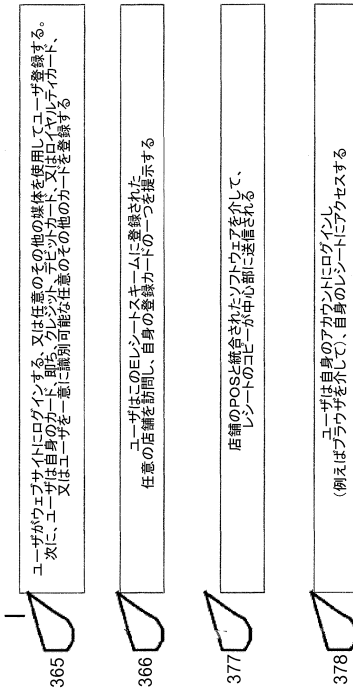 ユーザがウェブサイトにログインする、又は任意のその他の媒体を使用してユーザ登録する。
次に、ユーザは自身のカード、即ち、クレジット、デビットカード、又はロイヤルティカード、
又はユーザを一意に識別可能な任意のその他のカードを登録する
365
ユーザはこのEレシートスキームに登録された
任意の店舗を訪問し、自身の登録カードの一つを提示する
366
店舗のPOSと統合されたソフトウェアを介して、
レシートのコピーが中心部に送信される
377
ユーザは自身のアカウントにログインし
(例えばブラウザを介して)、自身のレシートにアクセスする
378